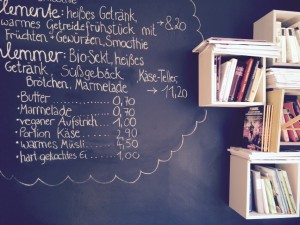 lemente: heißes Getränk,
warmes Getreidefrühstück mit → 8,20
Früchten + Gewürzen, Smoothie
lemmer: Bio-Sekt, heißes
Getränk, Süßgebäck, Käse-Teller,
Brötchen, Marmelade → 11,20
• Butter ........ 0,70
• Marmelade ..... 0,70
• veganer Aufstrich... 1,00
• Portion Käse.... 2,90
• warmes Müsli.... 4,50
• hart gekochtes Ei..... 1,00